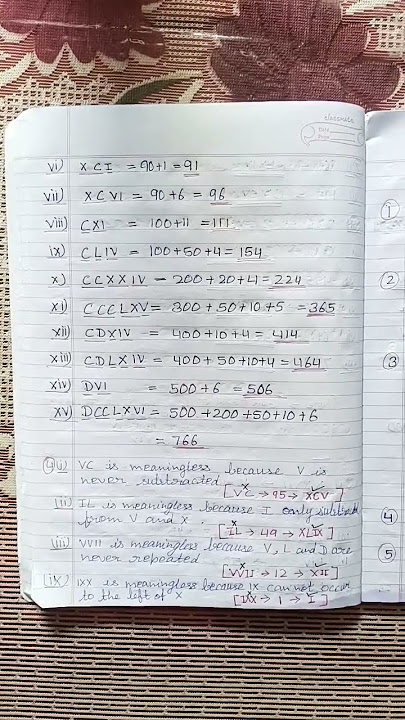 classmate
Date
Page
vi) XCI = 90+1 = 91
vii) XCVI = 90+6 = 96
viii) CXI = 100+11 = 111
ix) CLIV = 100+50+4 = 154
x) CCXXIV - 200+20+4 = 224
xi) CCCLXV = 300+50+10+5 = 365
xii) CDXIV = 400+10+4 = 414
xiii) CDLXIV = 400+50+10+4 = 464
xiv) DVI = 500+6 = 506
xv) DCCLXVI = 500+200+50+10+6
= 766
4 (i) VC is meaningless because V is
never subtracted
[VC → 95 → XCV]
(ii) IL is meaningless because I only subtract
from V and X.
[IL → 49 → XLIX]
(iii) VVII is meaningless because V, L and D are
never repeated
[VVII → 12 → XII]
(ix) IXX is meaningless because IX cannot occur
to the left of X
[IXX → 1 → I]
1
2
3
4
5